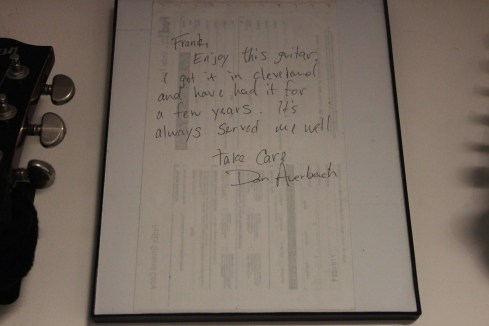 Frank,
Enjoy this guitar,
I got it in cleveland
and have had it for
a few years. It's
always served me well
take care
Dan Auerbach